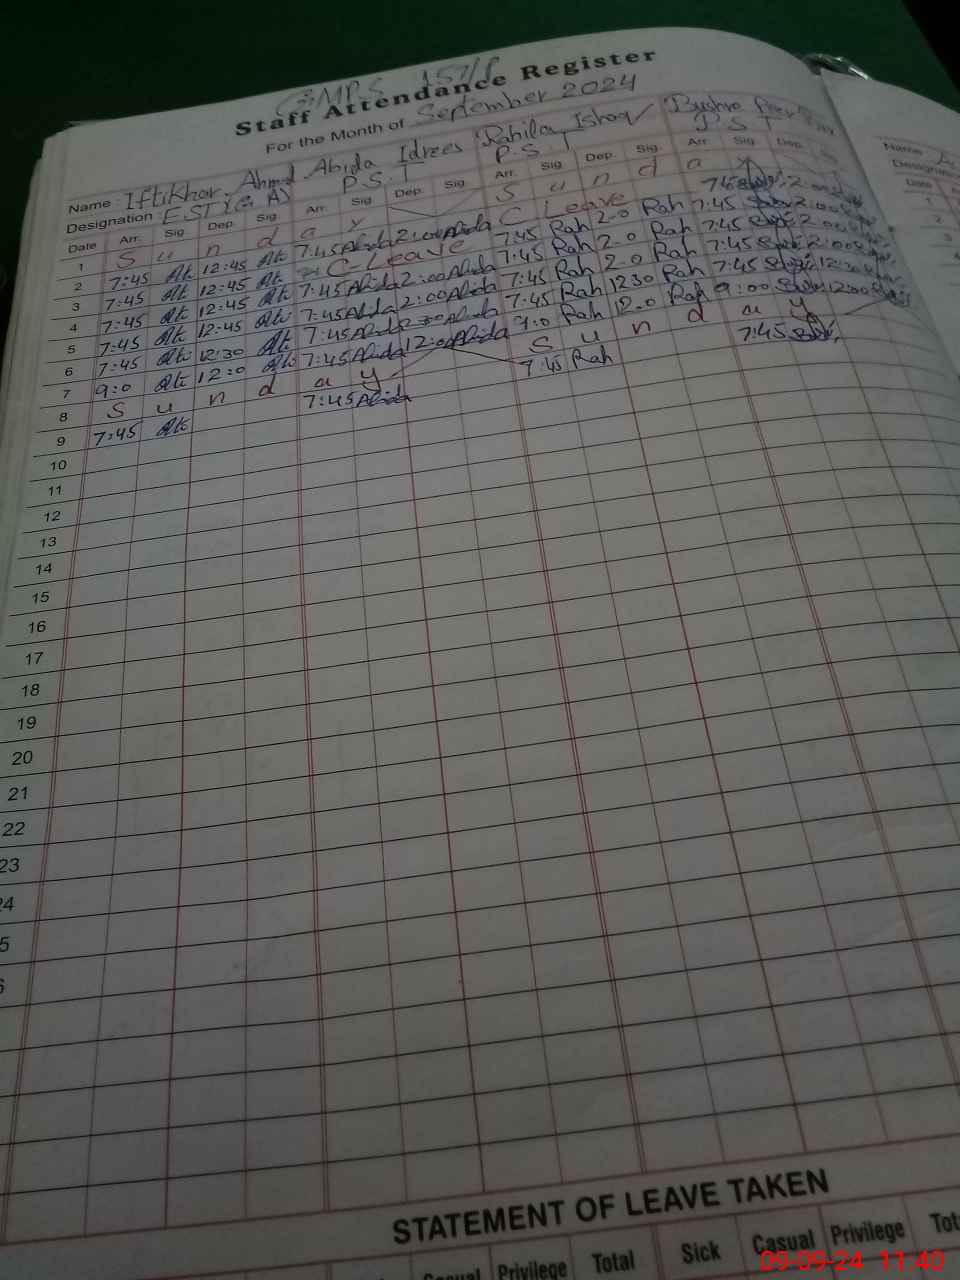 GMPS 157/
Staff Attendance Register
For the Month of September 2024
Name : Iftikhar Ahmd Abida Idrees Rahila Ishaq Bushra
Designation : EST P.S.T P.S.T P.S.T
Date Arr. Sig Dep. Sig. Arr. Sig Dep. Sig Arr. Sig Dep. Sig. Arr. Sig Dep.
1 S u n d a y S u n d a y
2 7:45 12:45 7:45 Abida 2:00 Abida C Leave 7:45 2:00
3 7:45 12:45 C-Leave 7:45 Rah 2-0 Rah 7:45 2:00
4 7:45 12:45 7:45 Abida 2:00 Abida 7:45 Rah 2-0 Rah 7:45 2:00
5 7:45 12:45 7:45 Abida 2:00 Abida 7:45 Rah 2-0 Rah 7:45 2:00
6 7:45 12:30 7:45 Abida 12:30 Abida 7:45 Rah 1230 Rah 7:45 12:30
7 9:0 12:0 7:45 Abida 12:00 Abida 9:0 Rah 12.0 Rah 9:00 12:00
8 S u n d a y S u n d a y
9 7:45 7:45 Abida 7:45 Rah 7:45
10
11
12
13
14
15
16
17
18
19
20
21
22
23
24
5
6
STATEMENT OF LEAVE TAKEN
Privilege Total Sick Casual Privilege
Name
Date
1
2
3
4
09-09-24 11:40